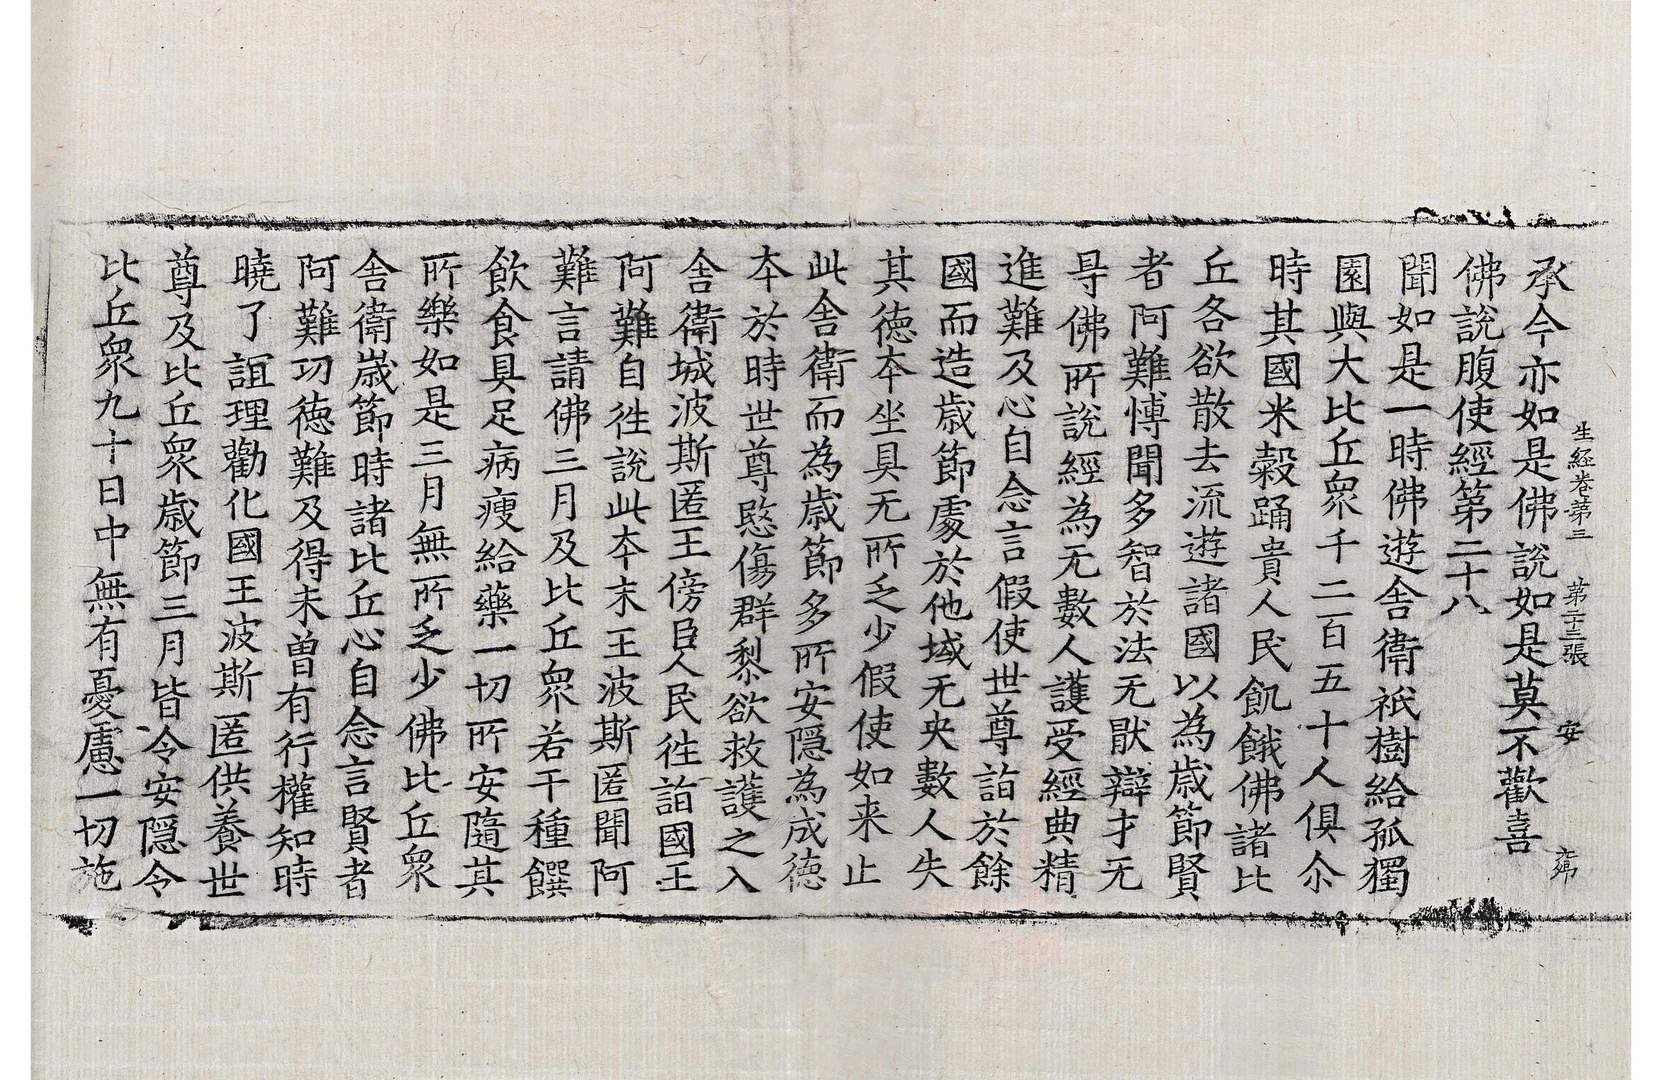 生経卷第三　第二十三張　安
承今亦如是佛說如是莫不歡喜
佛說腹使經第二十八
聞如是一時佛遊舎衛祇樹給孤獨
園與大比丘衆千二百五十人俱尒
時其國米糓踊貴人民飢餓佛諸比
丘各欲散去流遊諸國以為歳節賢
者阿難愽聞多智於法无猒辯才无
㝵佛所說經為无數人護受經典精
進難及心自念言假使世尊詣於餘
國而造歳節處於他域无央數人失
其徳夲坐具无所乏少假使如来止
此舎衛而為歳節多所安隱為成徳
夲於時世尊愍傷群黎欲救護之入
舎衛城波斯匿王傍臣人民徃詣國王
阿難自徃說此夲末王波斯匿聞阿
難言請佛三月及比丘衆若干種饌
飲食具足病瘦給藥一切所安隨其
所樂如是三月無所乏少佛比丘衆
舎衛歳節時諸比丘心自念言賢者
阿難功徳難及得未曽有行權知時
曉了誼理勸化國王波斯匿供養世
尊及比丘衆歳節三月皆令安隱令
比丘衆九十日中無有憂慮一切施